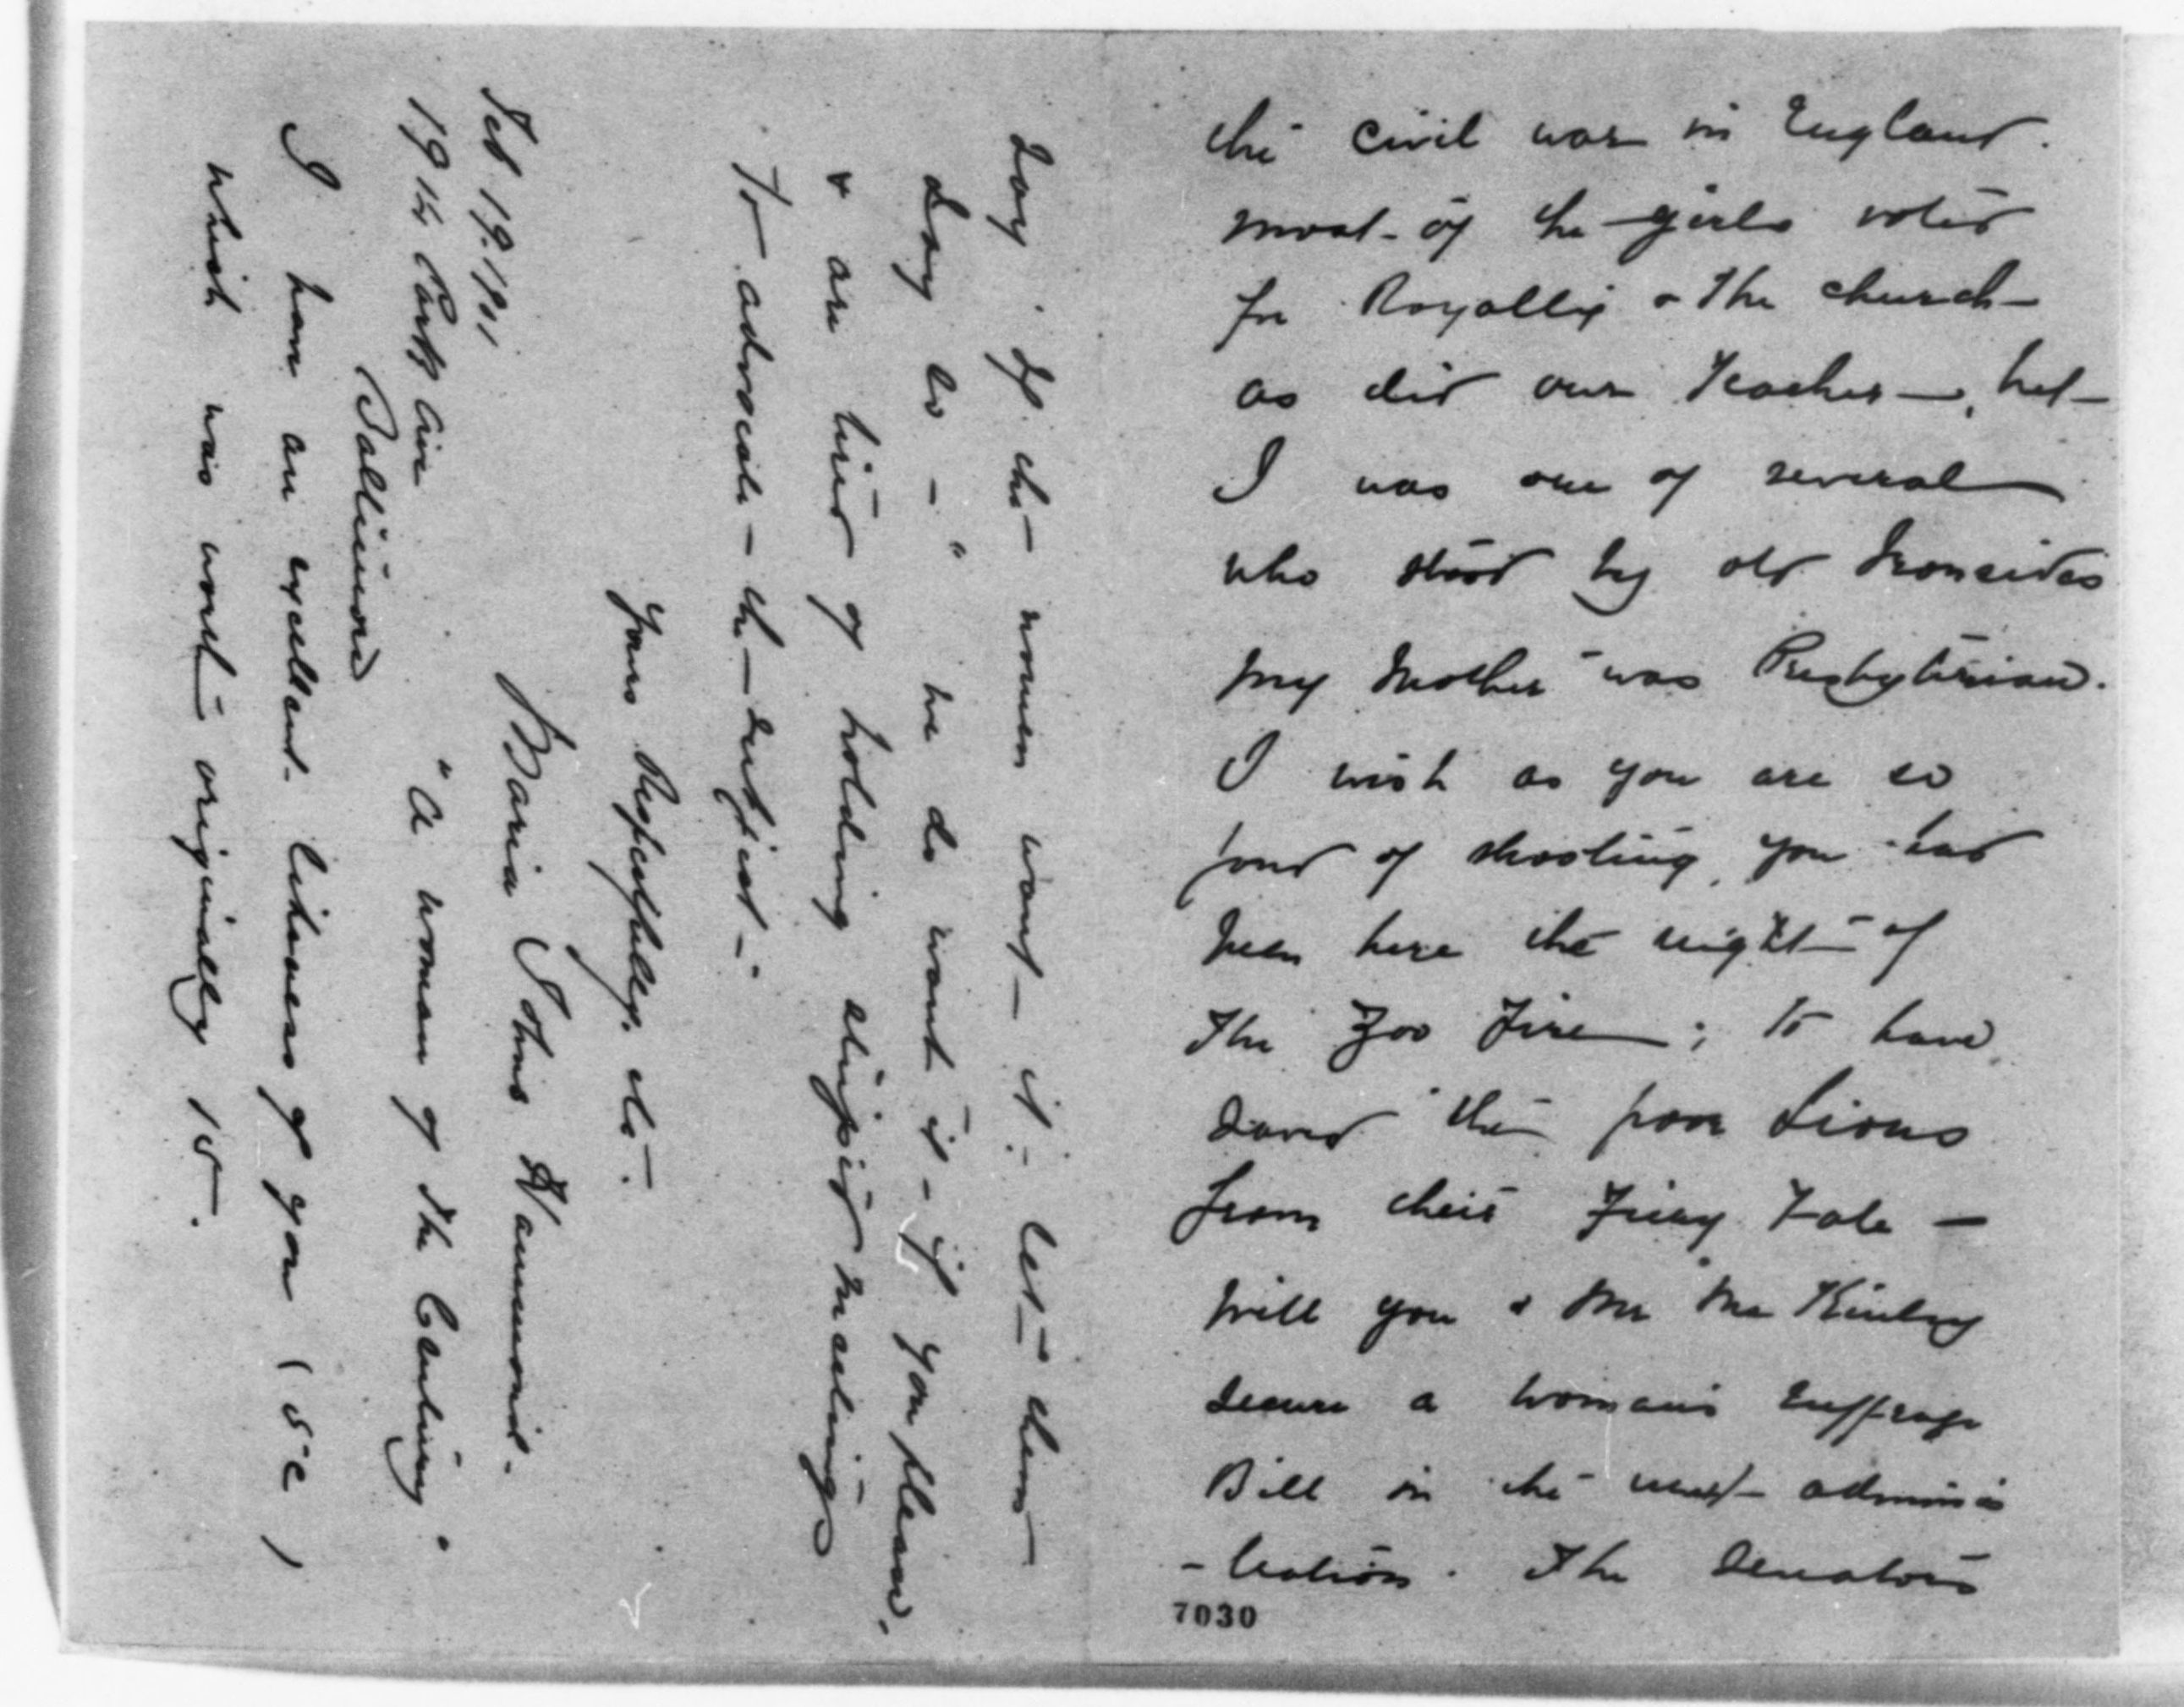 the civil war in England.
most of the girls voted
for Royalty & the church
as did our Teacher, but
I was one of several
who stood by old Ironsides
my mother was Presbyterian.
I wish as you are so
fond of shooting, you had
been here the night of
The Zoo Fire; to have
saved the poor Lions
from their Fiery Fate —
Will you & Mr McKinley
secure a womans suffrage
Bill in the next adminis
-tration. The Senators
7030
say "If the women want it - let them
say so - " we do want it - if you please,
& are tired of holding meetings
To advocate the subject -
Yours Respectfully, etc.
Maria Johns Hammond.
"A woman of the Century".
Feb 19. 1901
19 Park Ave
Baltimore
I have an excellent likeness of you (5c)
which was worth originally 15.